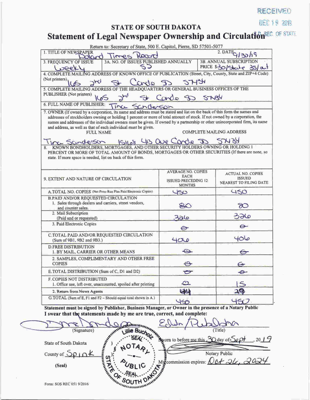 RECEIVED
DEC 19 2019
SD SEC OF STATE
STATE OF SOUTH DAKOTA
Statement of Legal Newspaper Ownership and Circulation
Return to: Secretary of State, 500 E. Capitol, Pierre, SD 57501-5077
1. TITLE OF NEWSPAPER
Times Record
2. DATE
9/30/19
3. FREQUENCY OF ISSUE
Weekly
3A. NO. OF ISSUES PUBLISHED ANNUALLY
52
3B. ANNUAL SUBSCRIPTION PRICE
4. COMPLETE MAILING ADDRESS OF KNOWN OFFICE OF PUBLICATION (Street, City, County, State and ZIP+4 Code)
(Not printers)
165 2nd St Conde SD 57434
5. COMPLETE MAILING ADDRESS OF THE HEADQUARTERS OR GENERAL BUSINESS OFFICES OF THE
PUBLISHER (Not printer)
165 2nd St Conde SD 57434
6. FULL NAME OF PUBLISHER:
Tina Sanderson
7. OWNER (If owned by a corporation, its name and address must be stated and list on the back of this form the names and
addresses of stockholders owning or holding 1 percent or more of total amount of stock. If not owned by a corporation, the
names and addresses of the individual owners must be given. If owned by a partnership or other unincorporated firm, its name
and address, as well as that of each individual must be given.
FULL NAME
COMPLETE MAILING ADDRESS
Tina Sanderson
Conde SD 57434
8. KNOWN BONDHOLDERS, MORTGAGES, AND OTHER SECURITY HOLDERS OWNING OR HOLDING 1
PERCENT OR MORE OF TOTAL AMOUNT OF BONDS, MORTGAGES OR OTHER SECURITIES (If there are none, so
state. If more space is needed, list on back of this form.
9. EXTENT AND NATURE OF CIRCULATION
AVERAGE NO. COPIES
EACH
ISSUED PRECEDING 12
MONTHS
ACTUAL NO. COPIES
ISSUED
NEAREST TO FILING DATE
A. TOTAL NO. COPIES (Net Press Run Plus Paid Electronic Copies)
450
450
B. PAID AND/OR REQUESTED CIRCULATION
1. Sales through dealers and carriers, street vendors,
and counter sales.
80
80
2. Mail Subscription
(Paid and or requested)
326
326
3. Paid Electronic Copies
C. TOTAL PAID AND/OR REQUESTED CIRCULATION
(Sum of 9B1, 9B2 and 9B3.)
406
406
D. FREE DISTRIBUTION
1. BY MAIL, CARRIER OR OTHER MEANS
2. SAMPLES, COMPLIMENTARY AND OTHER FREE
COPIES
E. TOTAL DISTRIBUTION (Sum of C, D1 and D2)
F. COPIES NOT DISTRIBUTED
1. Office use, left over, unaccounted, spoiled after printing
15
2. Return from News Agents
29
G. TOTAL (Sum of E, F1 and F2 – Should equal total shown in A.)
450
450
Statement must be signed by Publisher, Business Manager, or Owner in the presence of a Notary Public
I swear that the statements made by me are true, correct, and complete:
Editor/Publisher
(Signature)
(Title)
State of South Dakota
County of Spink
(Seal)
SEAL
NOTARY
PUBLIC
SEAL
SOUTH DAKOTA
Sworn to before me this 30 day of Sept 2019
Notary Public
My commission expires: Oct 26, 2024
Form: SOS REC 051 9/2016